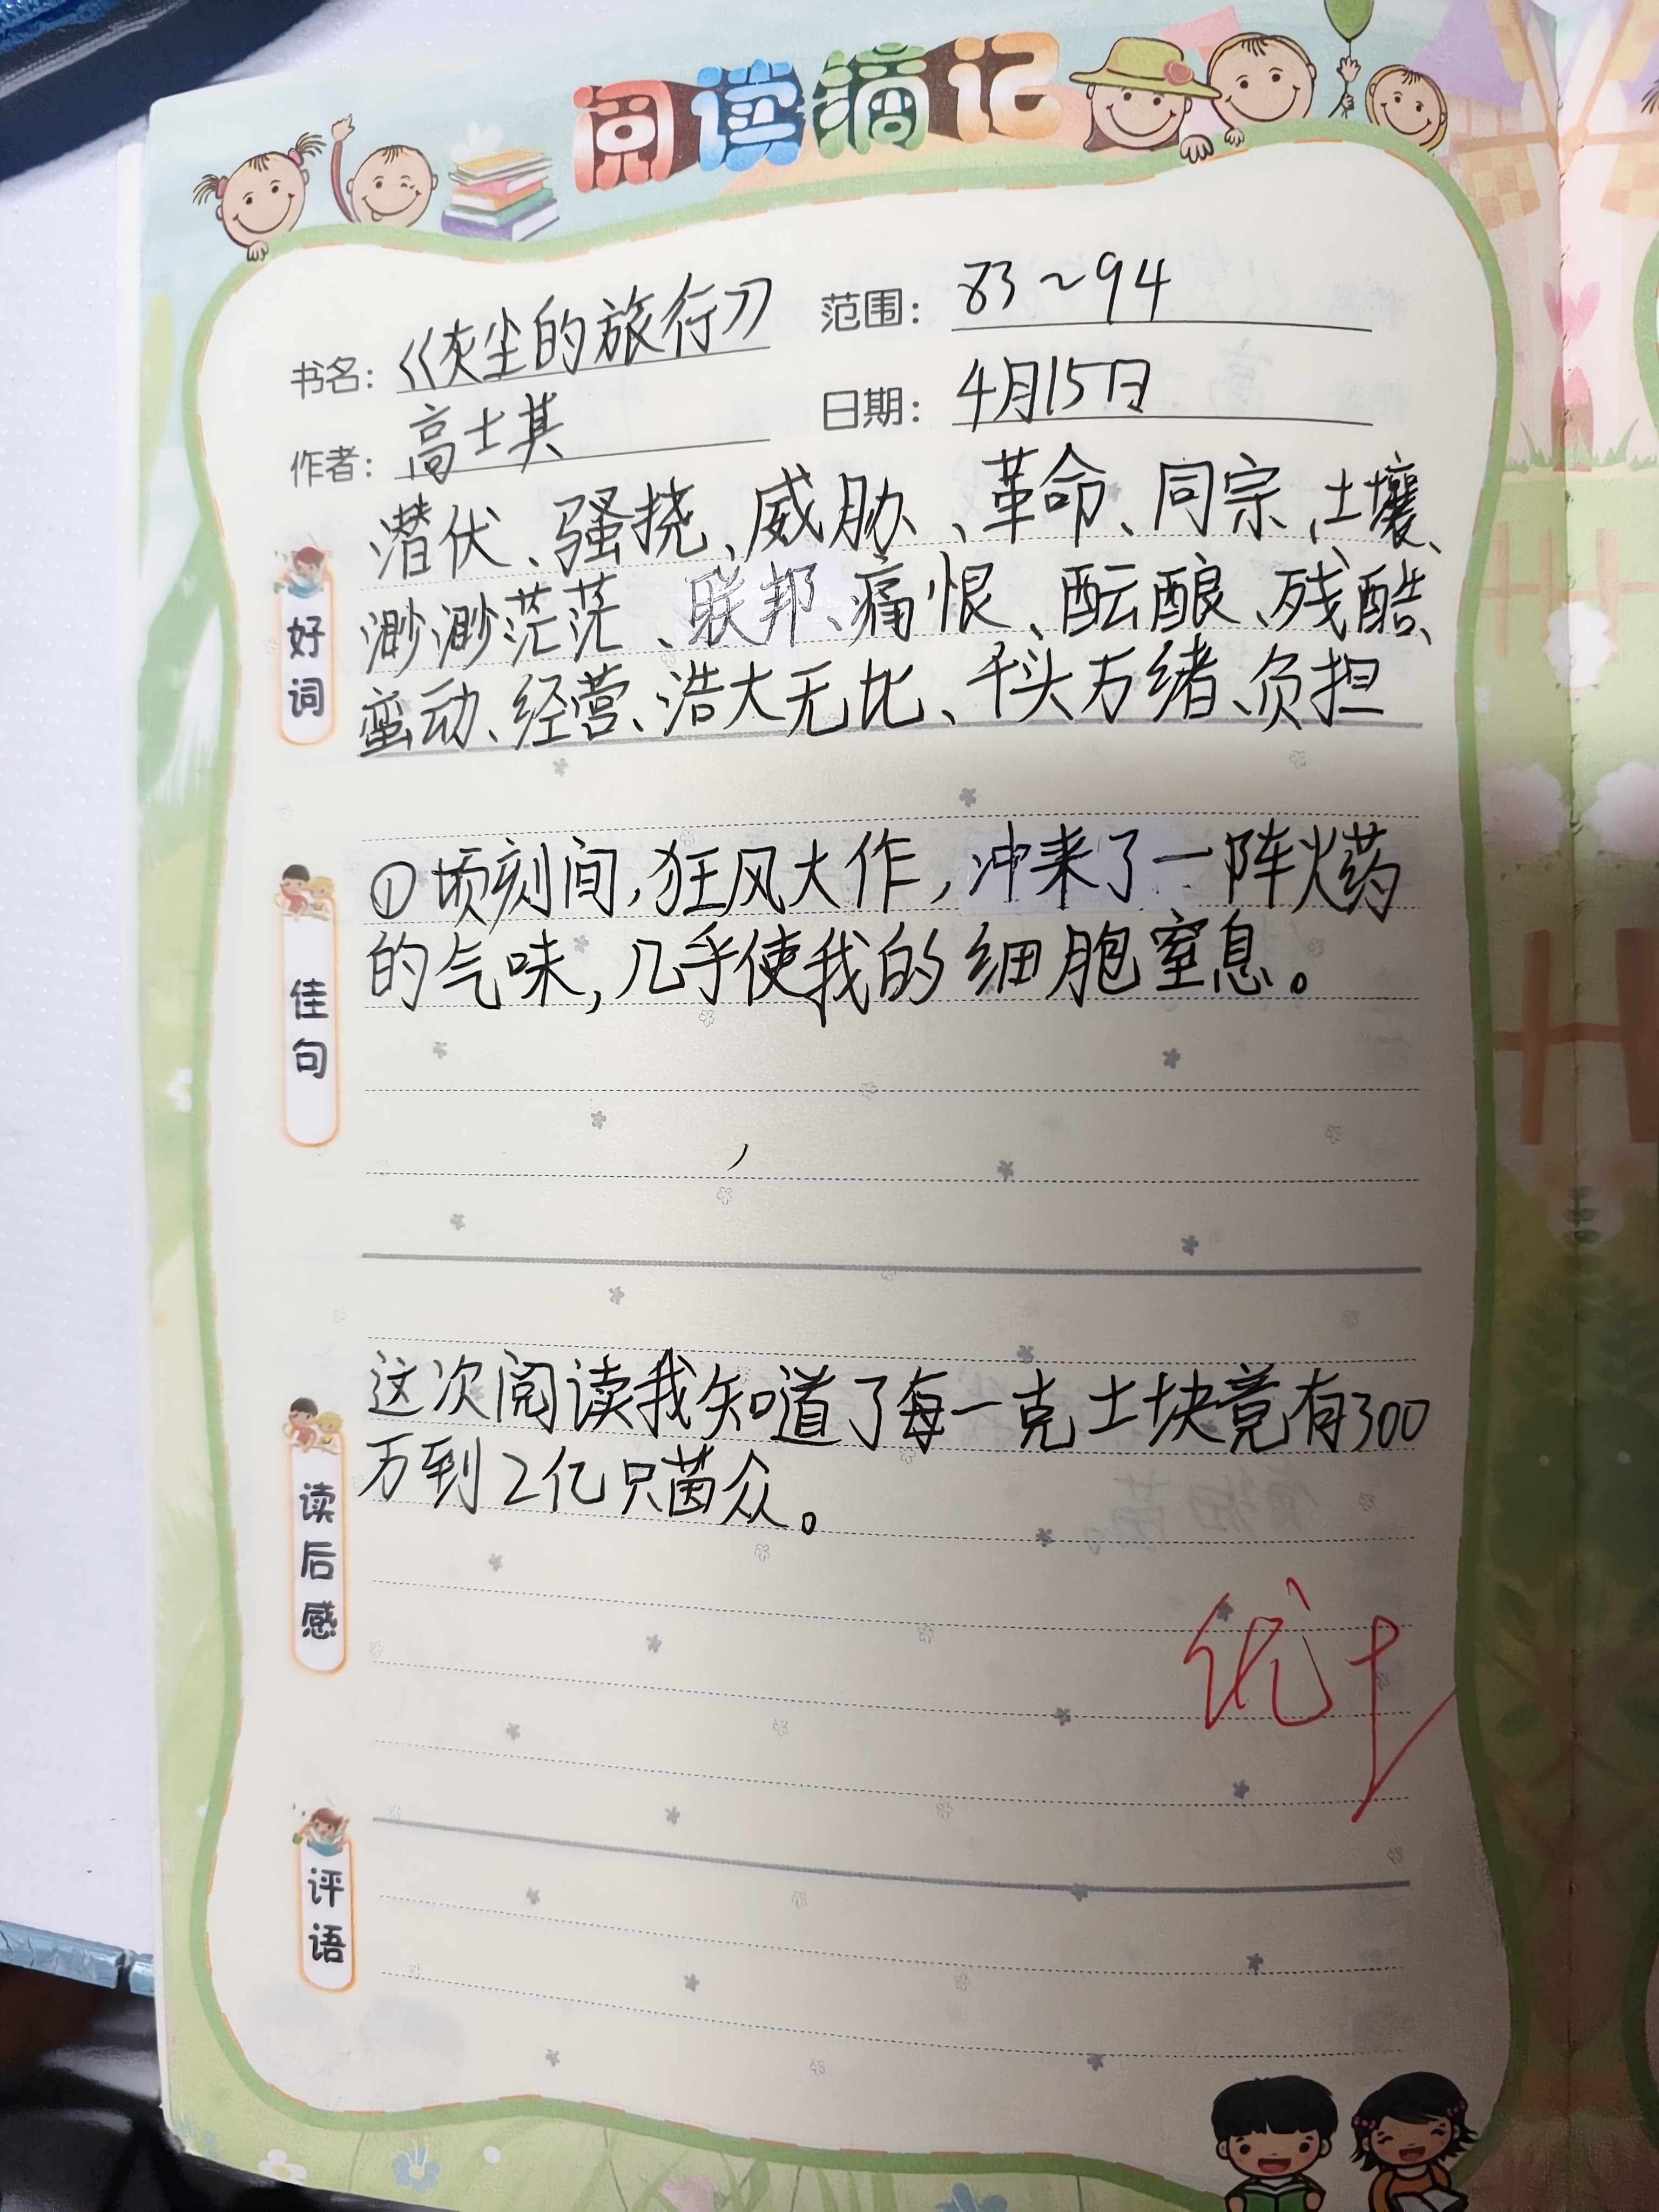 阅读摘记
书名：《灰尘的旅行》
范围：83～94
作者：高士其
日期：4月15日
好词
潜伏、骚挠、威胁、革命、同宗、土壤、
渺渺茫茫、联邦、痛恨、酝酿、残酷、
蛮动、经营、浩大无比、千头万绪、负担
佳句
①顷刻间，狂风大作，冲来了一阵火药
的气味，几乎使我的细胞窒息。
读后感
这次阅读我知道了每一克土块竟有300
万到2亿只菌众。
优
评语